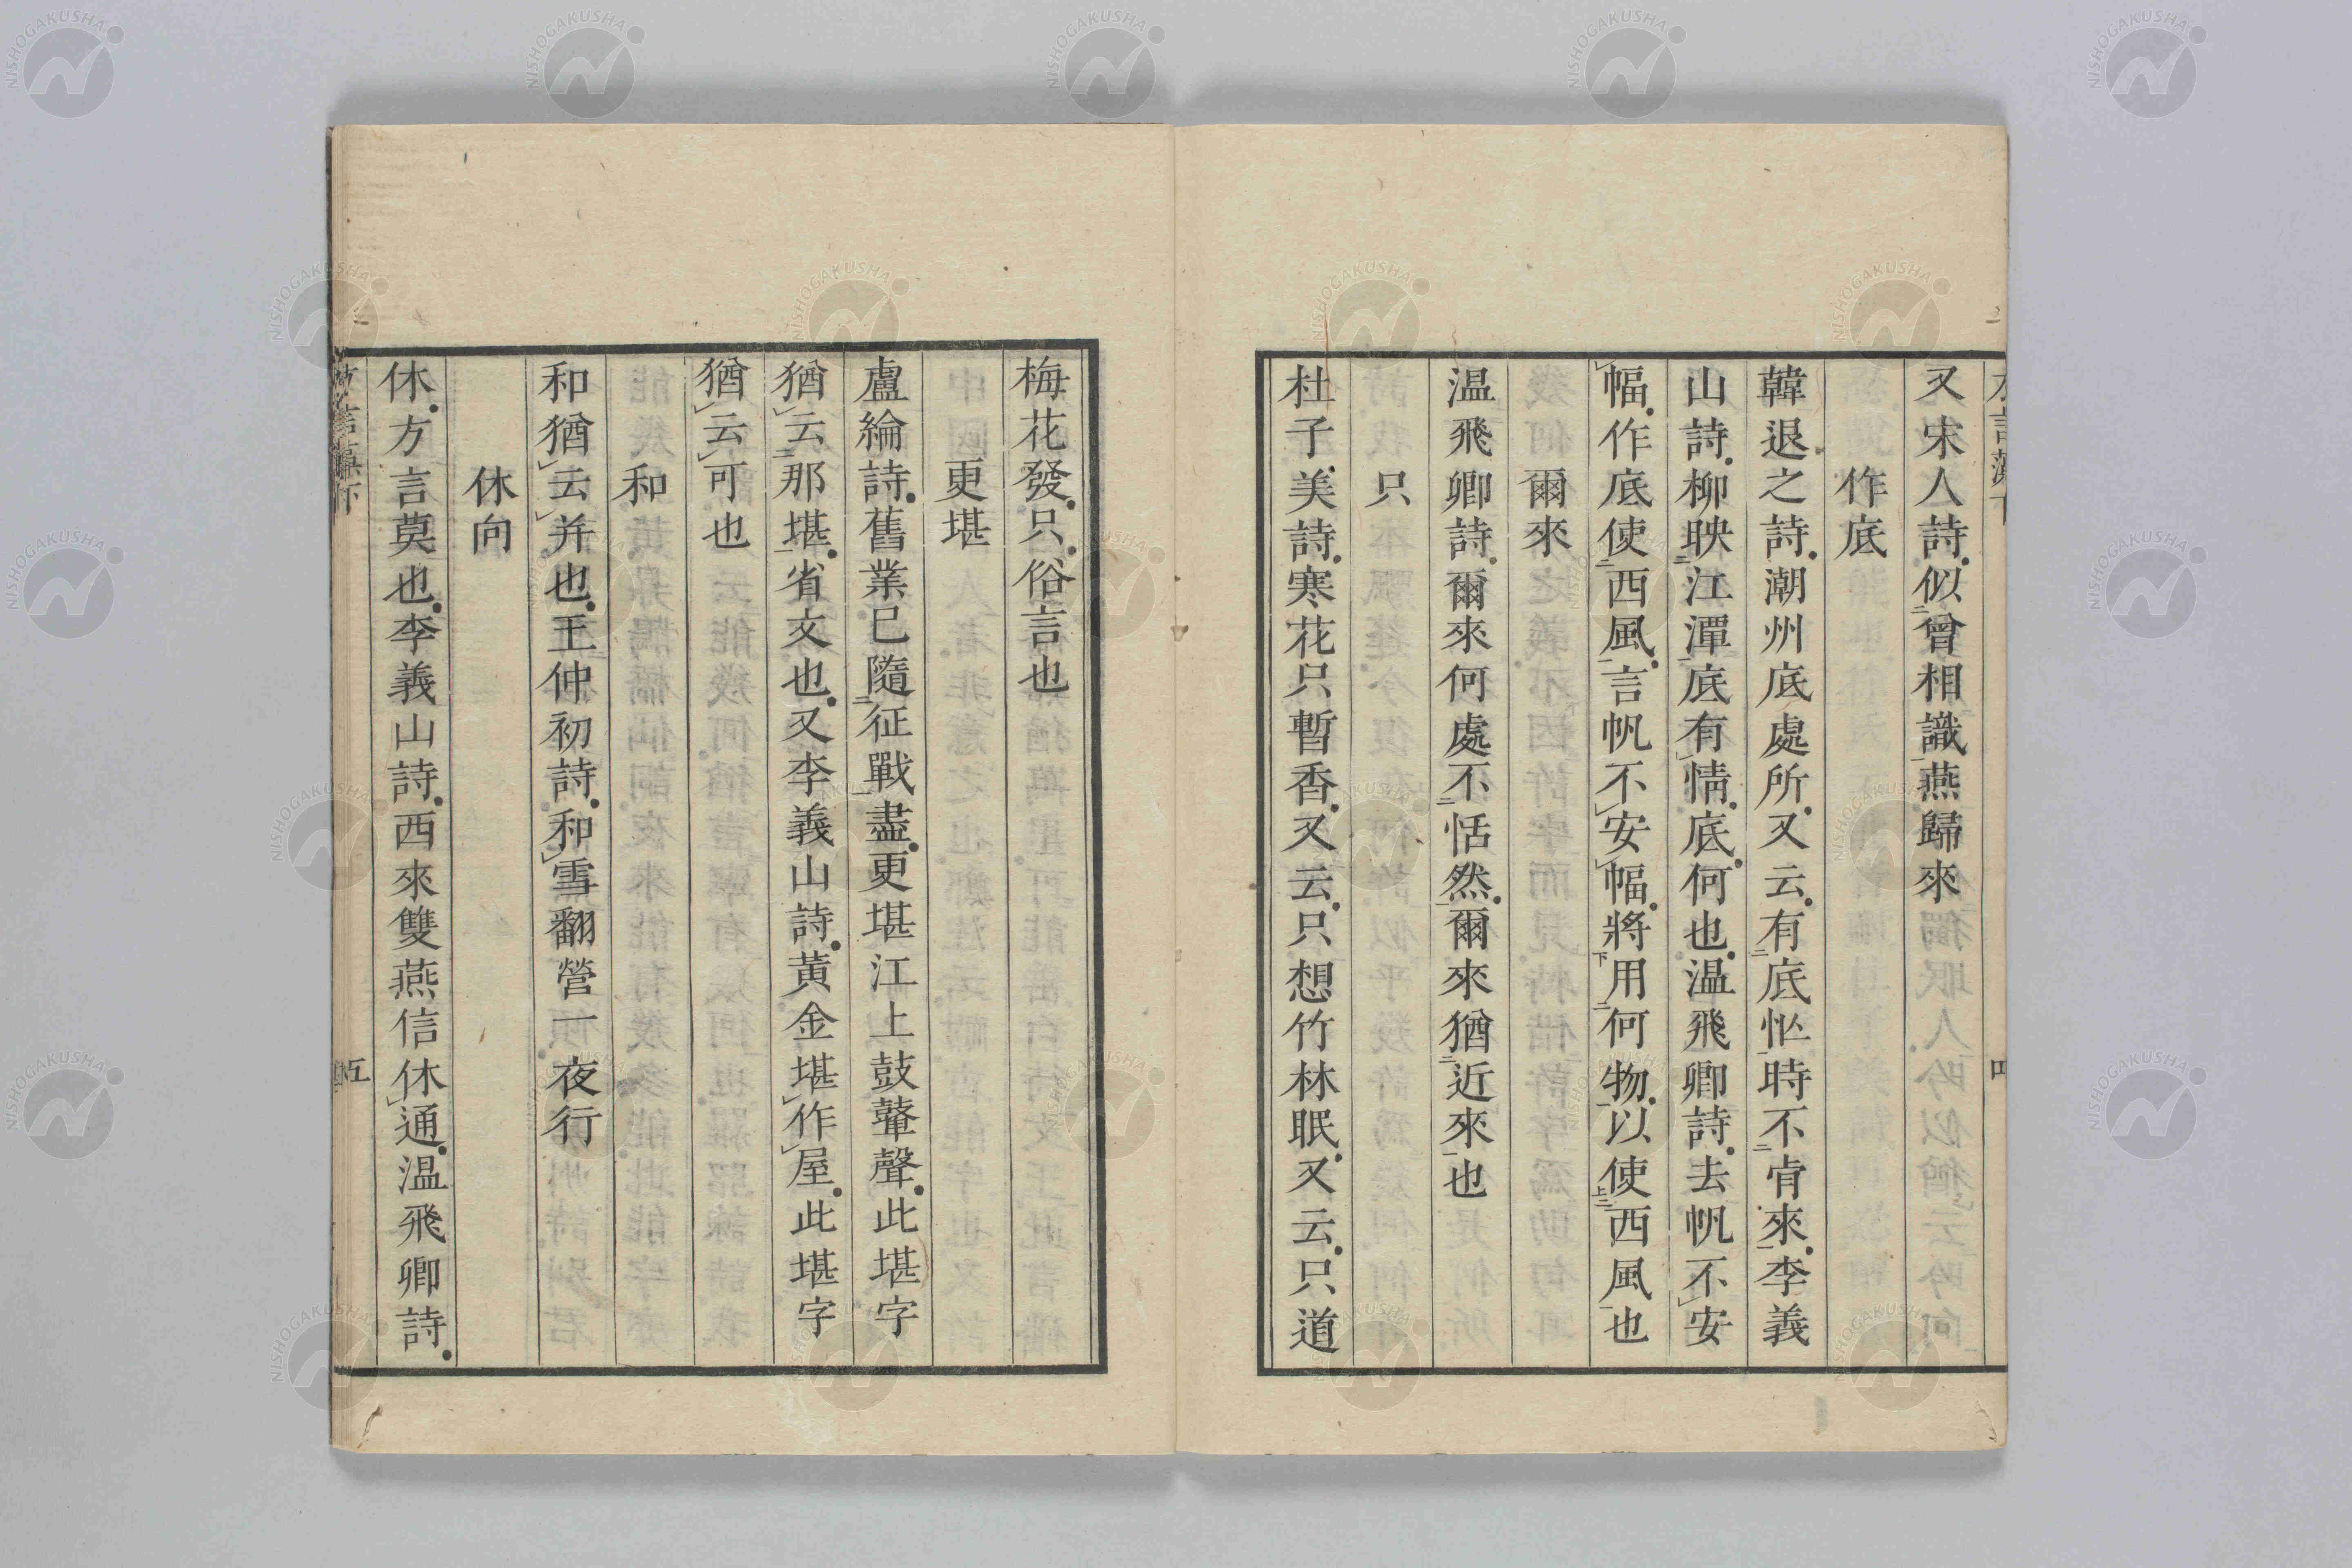 又宋人詩似曾相識燕歸來
作底
韓退之詩潮州底處所又云有底忙時不肯來李義
山詩柳映江潭底有情底何也温飛卿詩去帆不安
幅作底使西風言帆不安幅將用何物以使西風也
爾來
温飛卿詩爾來何處不恬然爾來猶近來也
只
杜子美詩寒花只暫香又云只想竹林眠又云只道
梅花發只俗言也
更堪
盧綸詩舊業已隨征戰盡更堪江上鼓鼙聲此堪字
猶云那堪省文也又李義山詩黃金堪作屋此堪字
猶云可也
和
和猶云并也王仲初詩和雪翻營一夜行
休向
休方言莫也李義山詩西來雙燕信休通温飛卿詩
五
NISHOGAKUSHA